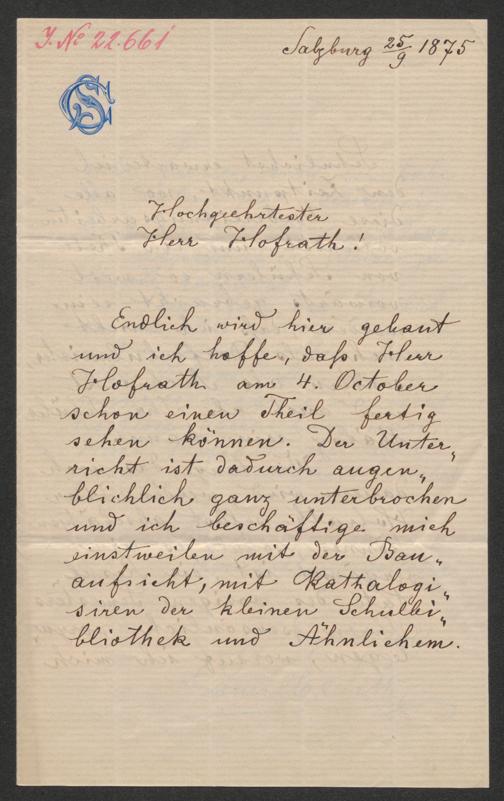 J. No 22.661
Salzburg 25/9 1875
Hochgeehrtester
Herr Hofrath!
Endlich wird hier gebaut
und ich hoffe, daß Herr
Hofrath am 4. October
schon einen Theil fertig
sehen können. Der Unter„
richt ist dadurch augen„
blichlich ganz unterbrochen
und ich beschäftige mich
einstweilen mit der Bau„
aufsicht, mit Kathalogi„
siren der kleinen Schulbi„
bliothek und Ähnlichem.